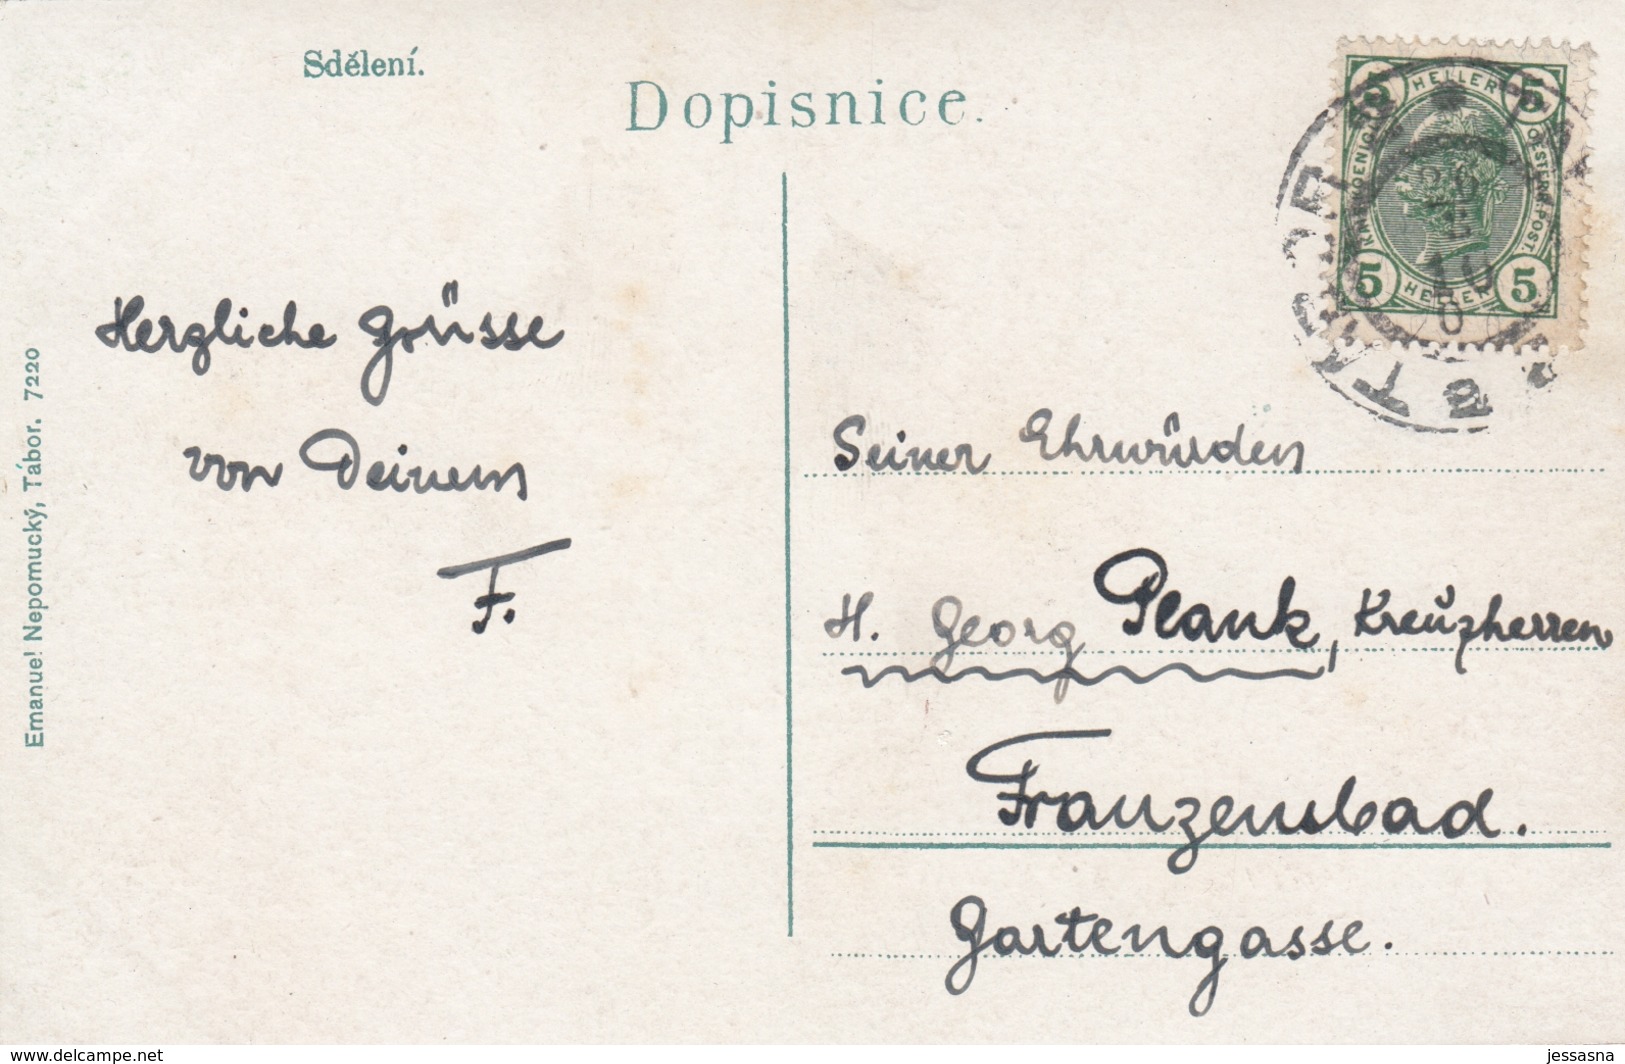 Sdělení.
Dopisnice.
5 HELLER 5
OESTERR.POST.
5 HELLER 5
Herzliche Grüsse
von Deinem
F.
Emanuel Nepomucký, Tábor. 7220
Seiner Ehrwürden
H. Georg Plank, Kreuzherren
Franzensbad.
Gartengasse.
jessasna
www.delcampe.net